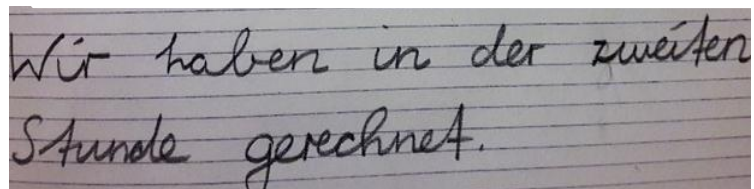 Wir haben in der zweiten
Stunde gerechnet.